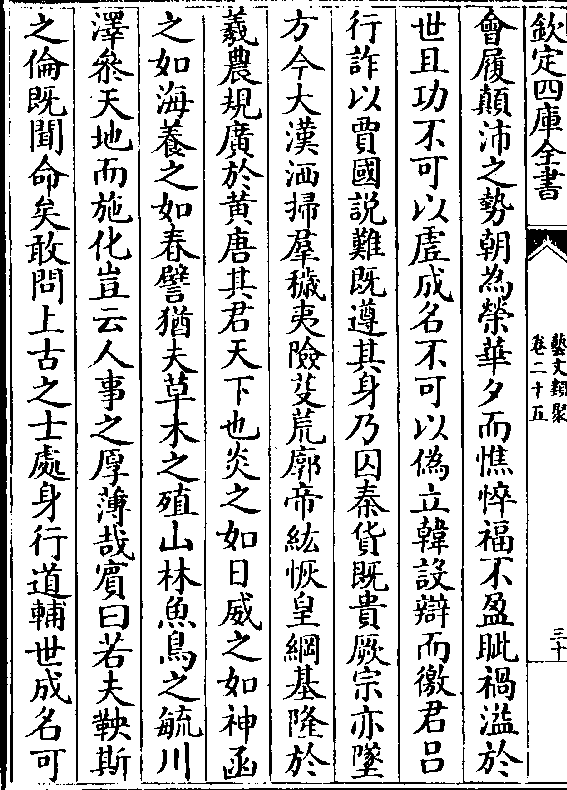 欽定四庫全書
藝文類聚
卷二十五
三十
會履顛沛之勢朝為榮華夕而憔悴福不盈眦禍溢於
世且功不可以虛成名不可以偽立韓設辯而徼君呂
行詐以賈國說難既遵其身乃囚秦貨既貴厥宗亦墜
方今大漢洒掃羣穢夷險芟荒廓帝紘恢皇綱基隆於
羲農規廣於黃唐其君天下也炎之如日威之如神函
之如海養之如春譬猶夫草木之殖山林魚鳥之毓川
澤叅天地而施化豈云人事之厚薄哉賓曰若夫鞅斯
之倫既聞命矣敢問上古之士處身行道輔世成名可